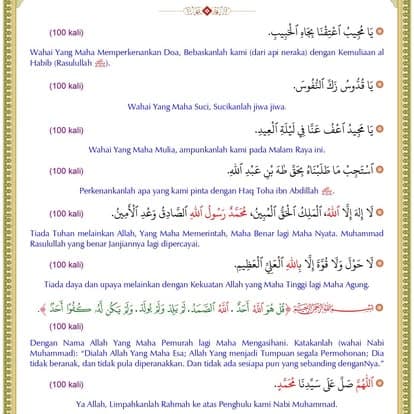 يَا مُجِيبُ اعْتِقْنَا بِجَاهِ الْحَبِيبِ. (100 kali)
Wahai Yang Maha Memperkenankan Doa, Bebaskanlah kami (dari api neraka) dengan Kemuliaan al
Habib (Rasulullah ﷺ).
يَا قُدُّوسُ زَكِّ النُّفُوسَ. (100 kali)
Wahai Yang Maha Suci, Sucikanlah jiwa jiwa.
يَا مَجِيدُ اعْفُ عَنَّا فِي لَيْلَةِ الْعِيدِ. (100 kali)
Wahai Yang Maha Mulia, ampunkanlah kami pada Malam Raya ini.
اسْتَجِبْ مَا طَلَبْنَاهُ بِحَقِّ طَهَ بْنِ عَبْدِ اللهِ. (100 kali)
Perkenankanlah apa yang kami pinta dengan Haq Toha ibn Abdillah ﷺ.
لَا إِلَهَ إِلَّا اللهُ، الْمَلِكُ الْحَقُّ الْمُبِينُ، مُحَمَّدٌ رَسُولُ اللهِ الصَّادِقُ وَعْدِ الْأَمِينُ. (100 kali)
Tiada Tuhan melainkan Allah, Yang Maha Memerintah, Maha Benar lagi Maha Nyata. Muhammad
Rasulullah yang benar Janjiannya lagi dipercayai.
لَا حَوْلَ وَلَا قُوَّةَ إِلَّا بِاللهِ الْعَلِيِّ الْعَظِيمِ. (100 kali)
Tiada daya dan upaya melainkan dengan Kekuatan Allah yang Maha Tinggi lagi Maha Agung.
﷽ ﴿قُلْ هُوَ اللهُ أَحَدٌ. اللهُ الصَّمَدُ. لَمْ يَلِدْ وَلَمْ يُولَدْ. وَلَمْ يَكُنْ لَهُ كُفُوًا أَحَدٌ﴾.
(100 kali)
Dengan Nama Allah Yang Maha Pemurah lagi Maha Mengasihani. Katakanlah (wahai Nabi
Muhammad): "Dialah Allah Yang Maha Esa; Allah Yang menjadi Tumpuan segala Permohonan; Dia
tidak beranak, dan tidak pula diperanakkan. Dan tidak ada sesiapa pun yang sebanding denganNya."
اللَّهُمَّ صَلِّ عَلَى سَيِّدِنَا مُحَمَّدٍ. (100 kali)
Ya Allah, Limpahkanlah Rahmah ke atas Penghulu kami Nabi Muhammad.